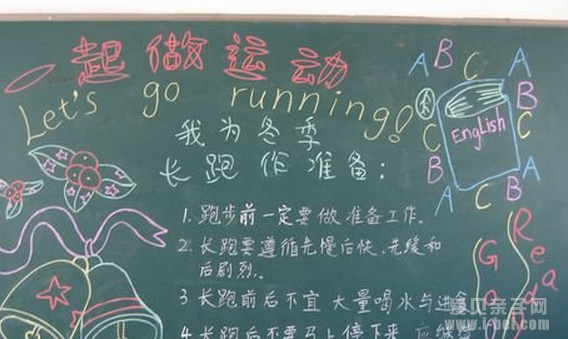 一起做运动
Let's go running!
我为冬季
长跑作准备：
1. 跑步前一定要做准备工作。
2. 长跑要遵循先慢后快、先缓和
后剧烈。
3 长跑前后不宜大量喝水与进食
4 长跑后不要马上停下来 应继续
A B C A
B
C C
B A
A C B
English
Ready
Go
亲子网
www.i-bei.com